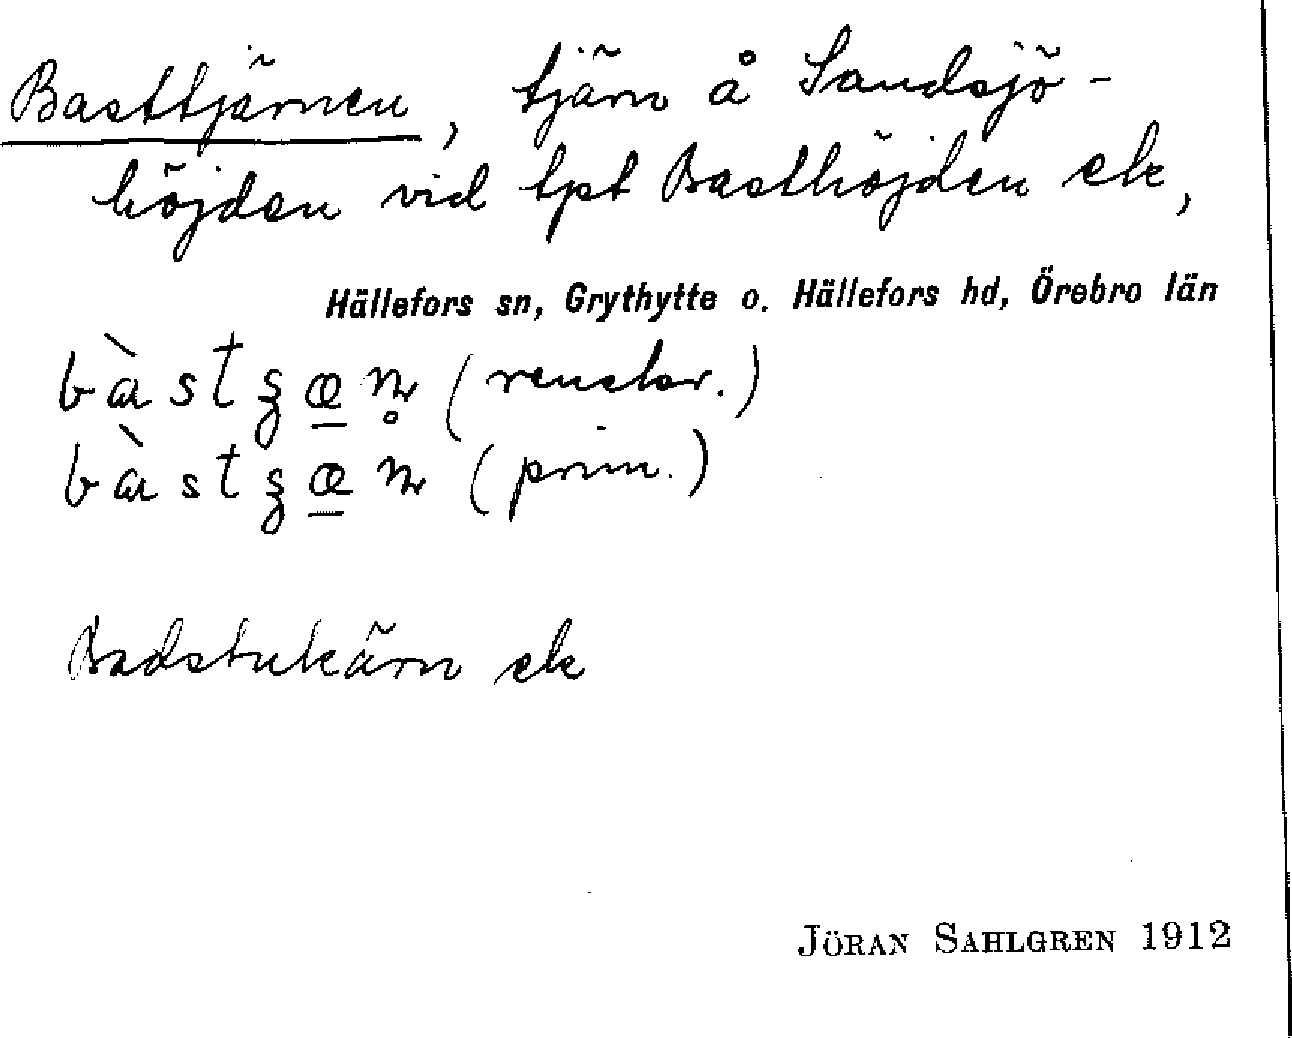 Basttjärnen, tjärn å Sandsjö-
höjden vid tpt Basthöjden ek,
Hällefors sn, Grythytte o. Hällefors hd, Örebro län
(renskr.)
(prim.)
Badstukärn ek
JÖRAN SAHLGREN 1912